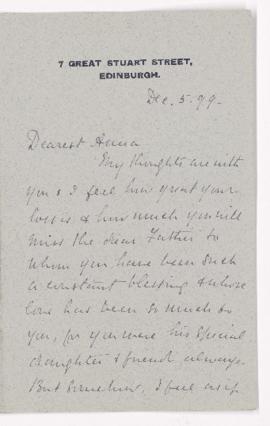 7 GREAT STUART STREET,
EDINBURGH.
Dec. 5. 99.
Dearest Anna
My thoughts are with
you & I feel how great your
loss is & how much you will
miss the dear Father to
whom you have been such
a constant blessing & whose
love has been so much to
you, for you were his special
daughter & friend always.
But somehow, I feel as if